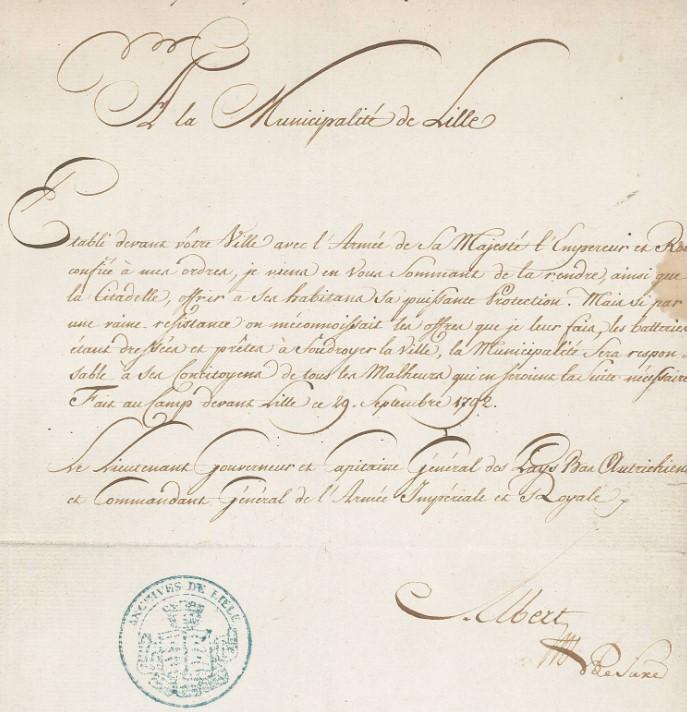 A la Municipalité de Lille
Etabli devant vôtre Ville avec l'Armée de Sa Majesté l'Empereur et Roi
confiée à mes ordres, je viens en vous Sommant de la rendre, ainsi que
la Citadelle, offrir à Ses habitans Sa puissante Protection. Mais Si par
une vaine resistance on méconnoissait les offres que je leur fais, les batteries
étant dressées et prêtes à foudroyer la Ville, la Municipalité Sera respon
sable à Ses Concitoyens de tous les Malheurs qui en Seroient la Suite nécessaire
Fait au Camp devant Lille ce 29. Septembre 1792.
Le Lieutenant Gouverneur et Capitaine Général des Pays Bas Autrichiens
et Commandant Général de l'Armée Impériale et Royale
Albert
de Saxe
ARCHIVES DE LILLE